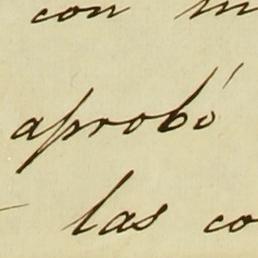 con
aprobó
las co